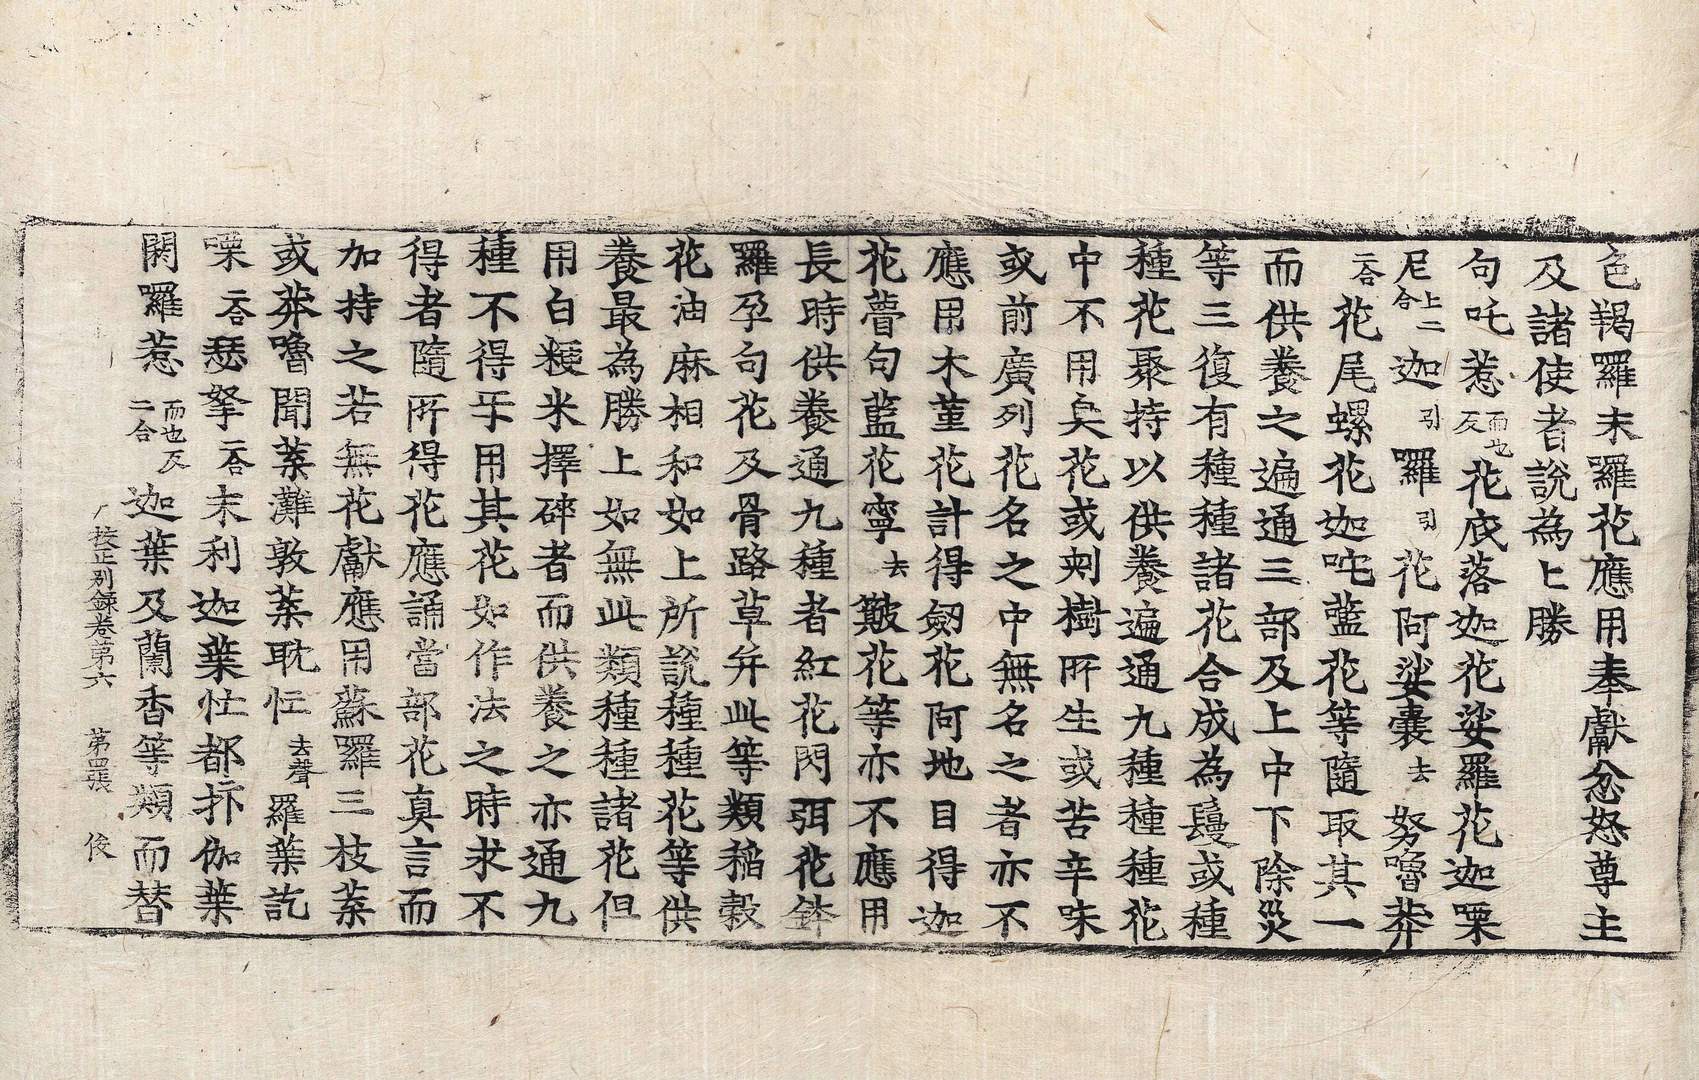 色羯羅末羅花應用奉獻忿怒尊主
及諸使者說為上勝
句吒惹而也反花底落迦花娑羅花迦㗚
尼上二合迦引囉引花阿娑曩去努嚕莽
二合花尾螺花迦咤藍花等隨取其一
而供養之遍通三部及上中下除災
等三復有種種諸花合成為鬘或種
種花聚持以供養遍通九種種種花
中不用臭花或刺樹所生或苦辛味
或前廣列花名之中無名之者亦不
應用木堇花計得劒花阿地目得迦
花瞢句藍花寧去皺花等亦不應用
長時供養通九種者紅花閃弭花鉢
羅孕句花及骨路草并此等類稻穀
花油麻相和如上所說種種花等供
養最為勝上如無此類種種諸花但
用白粳米擇碎者而供養之亦通九
種不得乎用其花如作法之時求不
得者隨所得花應誦當部花真言而
加持之若無花獻應用蘇羅三枝葉
或莽嚕聞葉灘敦葉耽忹去聲羅葉訖
㗚二合瑟拏二合末利迦葉忹都抃伽葉
閼囉惹而也反二合迦葉及蘭香等類而替
校正別錄卷第六 第四張 俊